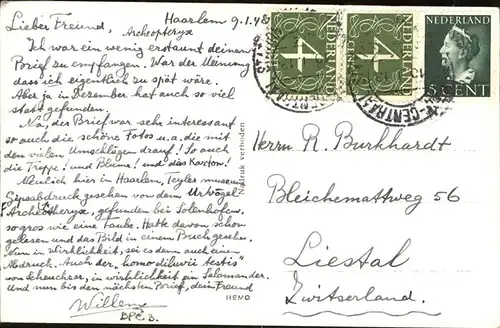 Haarlem 9.1.48
Lieber Freund,
Archeopteryx
Ich war ein wenig erstaunt deinen
Brief zu empfangen. War der Meinung
dass ich eigentlich zu spät wäre.
Aber ja in Dezember hat auch so viel
statt gefunden.
Na, der Brief war sehr interessant
so auch die schöne Fotos u.a. die mit
den vielen Umschlägen drauf! So auch
die Treppe! und Blume! und das Karton!
Neulich hier in Haarlem, Teyler museum
Genabdruck gesehen von dem Urvögel
Archeotheryx, gefunden bei Solenhofen.
so gros wie eine Taube. Hatte davon schon
gelesen und das Bild in einem Buch gesehen.
Nun in Wirklichkeit, sei es denn auch ein
Abdruck. Auch der "homo diluvii testis"
von Scheuchzer, in wirklichkeit ein Salamander.
Und nun bis den nächsten Brief, dein Freund
Willem
BPC 3.
Nadruk verboden
HEMO
NEDERLAND
4
NEDERLAND
4
NEDERLAND
5 CENT
Herrn R. Burkhardt
Bleichemattweg 56
Liestal
Zwitserland.